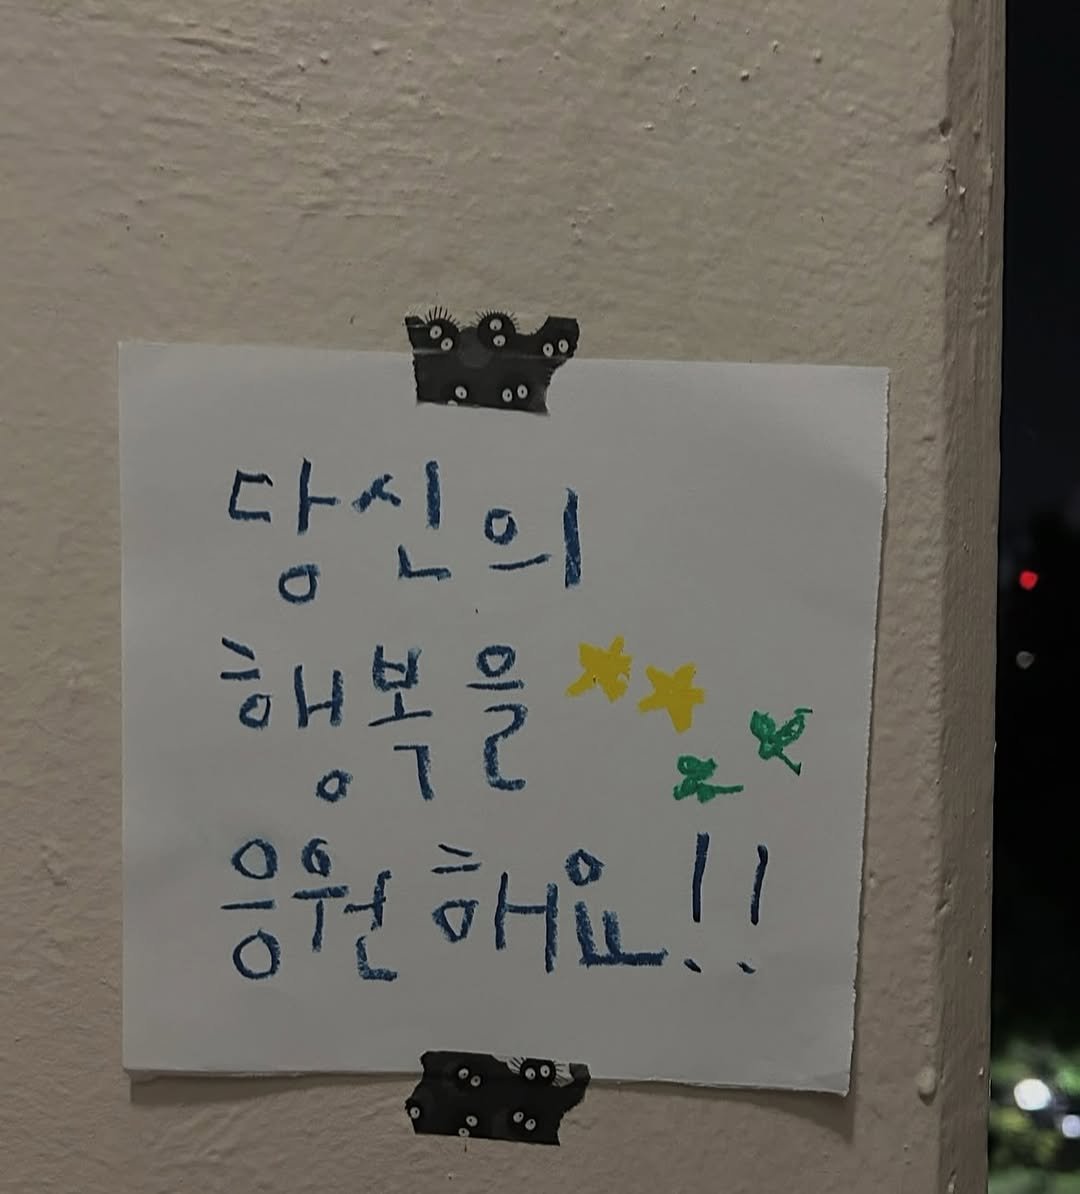 당신의
행복을
응원해요!!